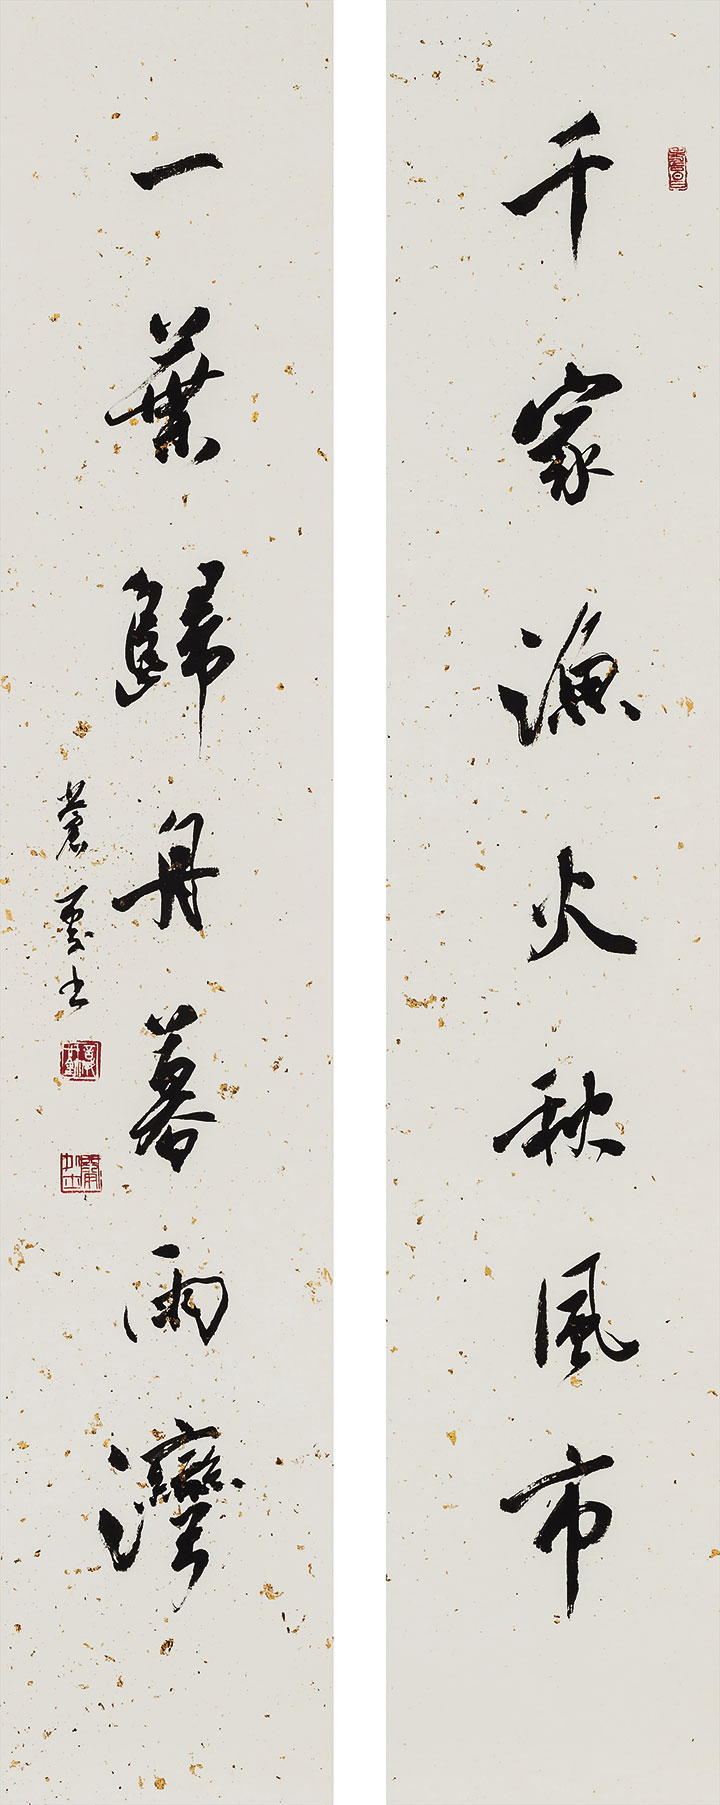 千家漁火秋風市
一葉歸舟暮雨灣